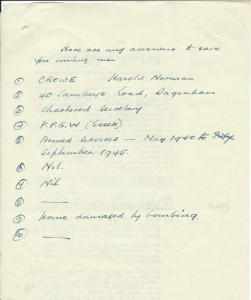 Here are my answers to save
you writing me.
① CROWE Harold Norman
② 40 Road, Dagenham
③ Chartered Secretary
④ P.P.G.W (Essex)
⑤ Armed Services — May 1940 to
September 1945.
⑥ Nil.
⑦ Nil
⑧ ———
⑨ Home damaged by bombing.
⑩ ———